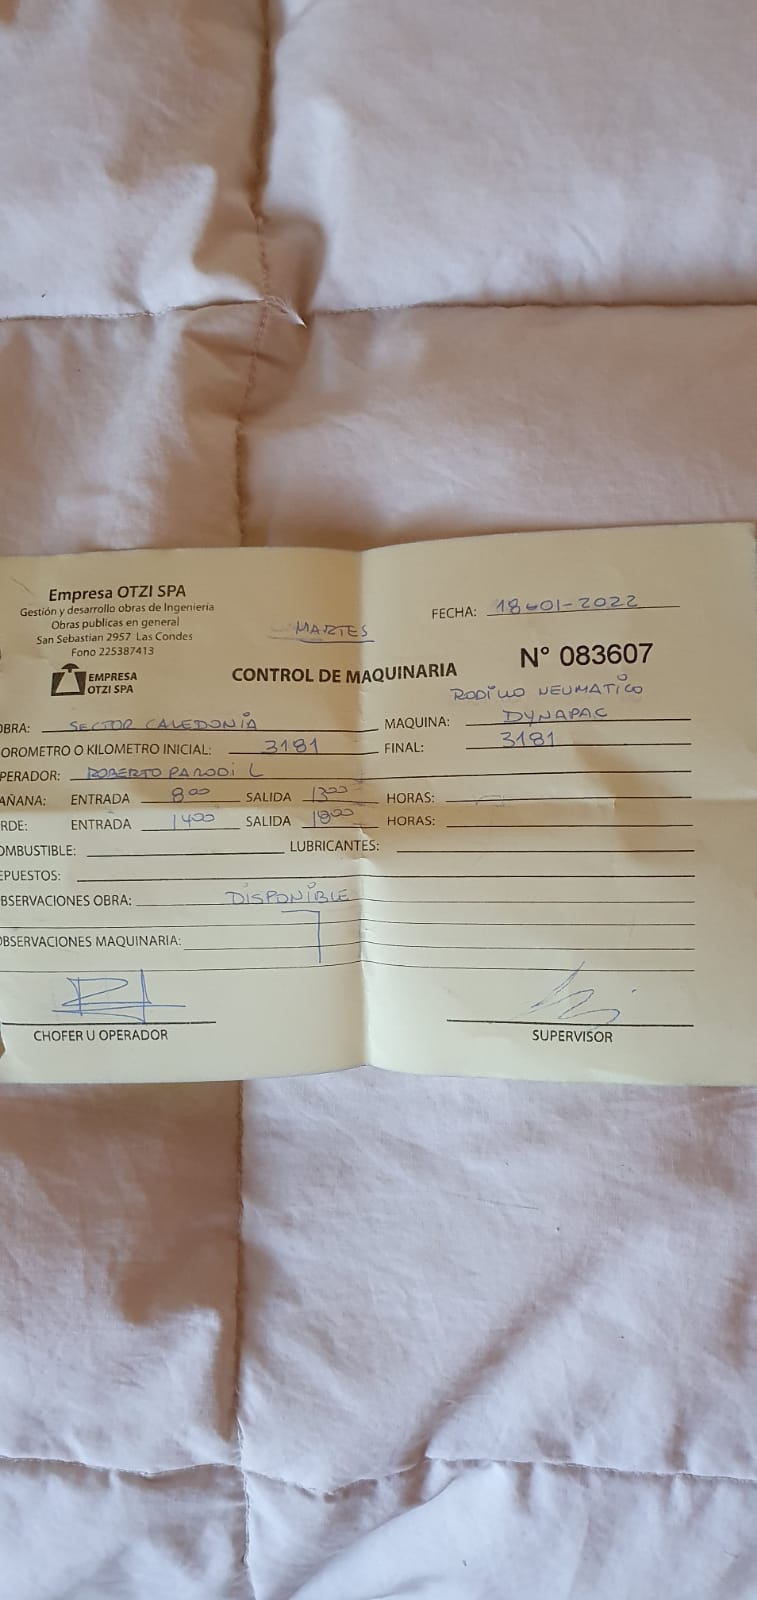 Empresa OTZI SPA
Gestión y desarrollo obras de Ingeniería
Obras publicas en general
San Sebastian 2957 Las Condes
Fono 225387413
EMPRESA
OTZI SPA
MARTES
FECHA: 18-01-2022
CONTROL DE MAQUINARIA
N° 083607
RODILLO NEUMATICO
OBRA: SECTOR CALEDONIA MAQUINA: DYNAPAC
OROMETRO O KILOMETRO INICIAL: 3181 FINAL: 3181
PERADOR: ROBERTO PARODI L
AÑANA: ENTRADA 8:00 SALIDA 13:00 HORAS:
RDE: ENTRADA 14:00 SALIDA 18:00 HORAS:
OMBUSTIBLE: LUBRICANTES:
EPUESTOS:
BSERVACIONES OBRA: DISPONIBLE
OBSERVACIONES MAQUINARIA:
CHOFER U OPERADOR SUPERVISOR